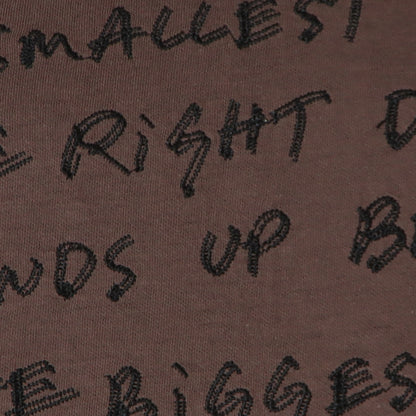 SMALLEST
E RIGHT D
NDS UP B
E BIGGES